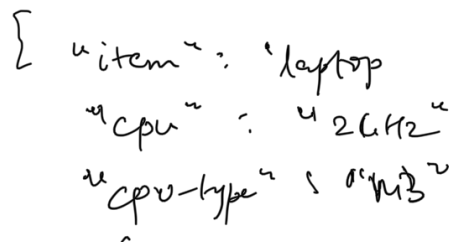 { "item" : "laptop
"cpu" : "2GHz"
"cpu-type" : "M3"